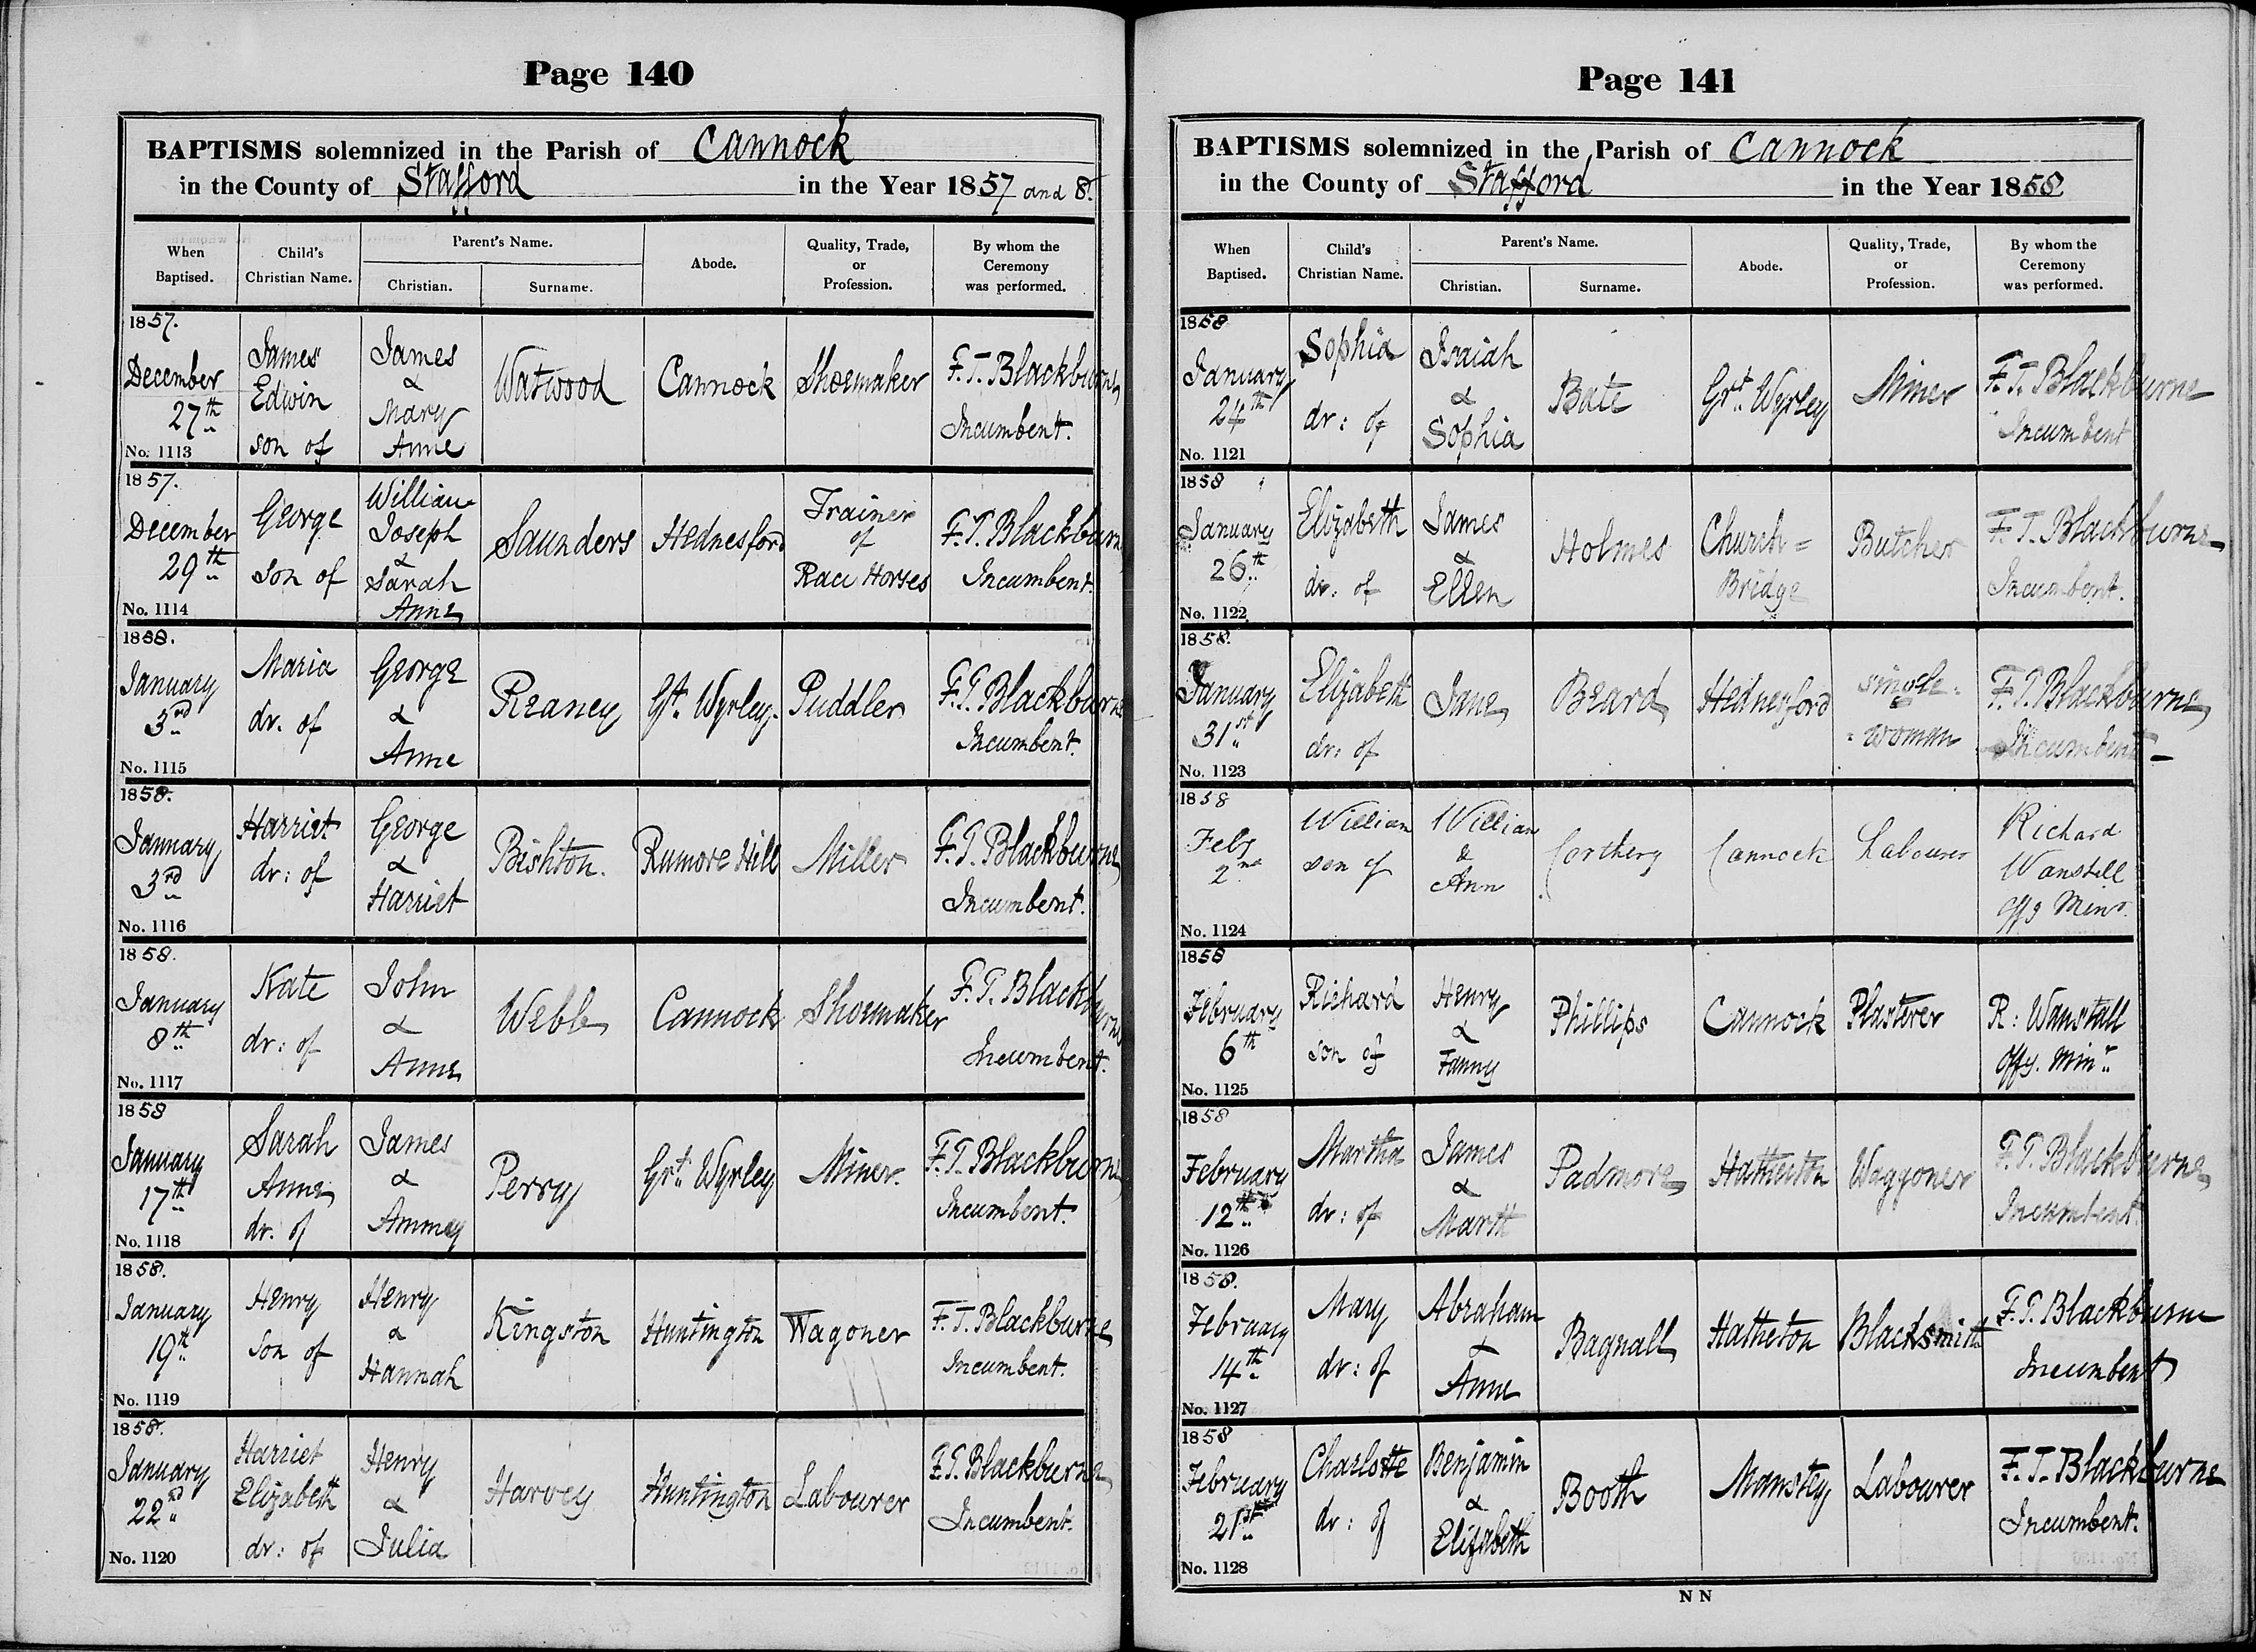 Page 140
BAPTISMS solemnized in the Parish of Cannock
in the County of Stafford in the Year 1857 and 8.
When Baptised. Child's Christian Name. Parent's Name. Christian. Surname. Abode. Quality, Trade, or Profession. By whom the Ceremony was performed.
1857.
December 27th
No. 1113
James Edwin son of
James & Mary Anne
Watwood
Cannock
Shoemaker
F. T. Blackburne Incumbent.
1857.
December 29th
No. 1114
George son of
William Joseph & Sarah Anne
Saunders
Hednesford
Trainer of Race Horses
F. T. Blackburne Incumbent.
1858.
January 3rd
No. 1115
Maria dr. of
George & Anne
Reaney
Gt. Wyrley.
Puddler
F. T. Blackburne Incumbent.
1858.
January 3rd
No. 1116
Harriet dr: of
George & Harriet
Bishton.
Rumore Hill
Miller
F. T. Blackburne Incumbent.
1858.
January 8th
No. 1117
Kate dr: of
John & Anne
Webb
Cannock
Shoemaker
F. T. Blackburne Incumbent.
1858
January 17th
No. 1118
Sarah Anne dr. of
James & Ammey
Perry
Grt. Wyrley
Miner.
F. T. Blackburne Incumbent.
1858.
January 19th
No. 1119
Henry son of
Henry & Hannah
Kingston
Huntington
Wagoner
F. T. Blackburne Incumbent.
1858.
January 22nd
No. 1120
Harriet Elizabeth dr: of
Henry & Julia
Harvey
Huntington
Labourer
F. T. Blackburne Incumbent.
Page 141
BAPTISMS solemnized in the Parish of Cannock
in the County of Stafford in the Year 1858.
When Baptised. Child's Christian Name. Parent's Name. Christian. Surname. Abode. Quality, Trade, or Profession. By whom the Ceremony was performed.
1858
January 24th
No. 1121
Sophia dr: of
Isaiah & Sophia
Bate
Grt. Wyrley
Miner
F. T. Blackburne Incumbent
1858
January 26th
No. 1122
Elizabeth dr: of
James & Ellen
Holmes
Church= Bridge
Butcher
F. T. Blackburne Incumbent.
1858.
January 31st
No. 1123
Elizabeth dr: of
Jane
Beard
Hednesford
single= =woman
F. T. Blackburne Incumbent
1858
Feby 2nd
No. 1124
William son of
William & Ann
Cannock
Labourer
Richard Wanstall offg Minr.
1858
February 6th
No. 1125
Richard son of
Henry & Fanny
Phillips
Cannock
Plasterer
R: Wanstall Offg. Minr.
1858
February 12th
No. 1126
Martha dr: of
James & Marth
Padmore
Hatherton
Waggoner
F. T. Blackburne Incumbent.
1858.
February 14th
No. 1127
Mary dr: of
Abraham & Anne
Bagnall
Hatherton
Blacksmith
F. T. Blackburne Incumbent
1858
February 21st
No. 1128
Charlotte dr: of
Benjamin & Elizabeth
Booth
Labourer
F. T. Blackburne Incumbent.
N N